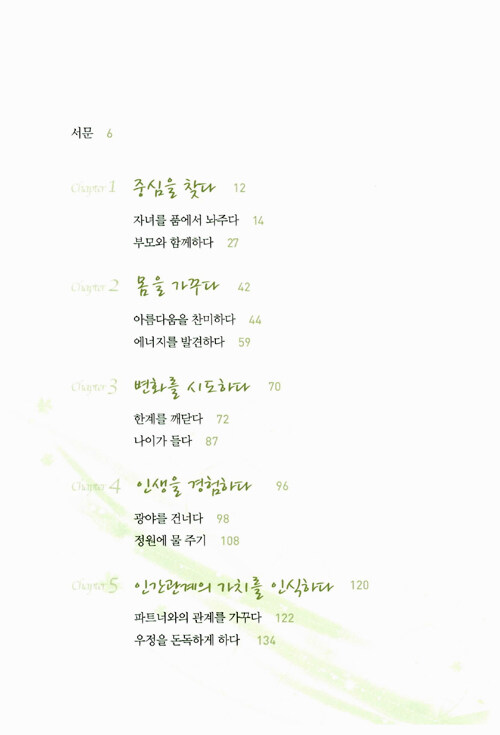 서문 6
Chapter 1 중심을 찾다 12
자녀를 품에서 놔주다 14
부모와 함께하다 27
Chapter 2 몸을 가꾸다 42
아름다움을 찬미하다 44
에너지를 발견하다 59
Chapter 3 변화를 시도하다 70
한계를 깨닫다 72
나이가 들다 87
Chapter 4 인생을 경험하다 96
광야를 건너다 98
정원에 물 주기 108
Chapter 5 인간관계의 가치를 인식하다 120
파트너와의 관계를 가꾸다 122
우정을 돈독하게 하다 134